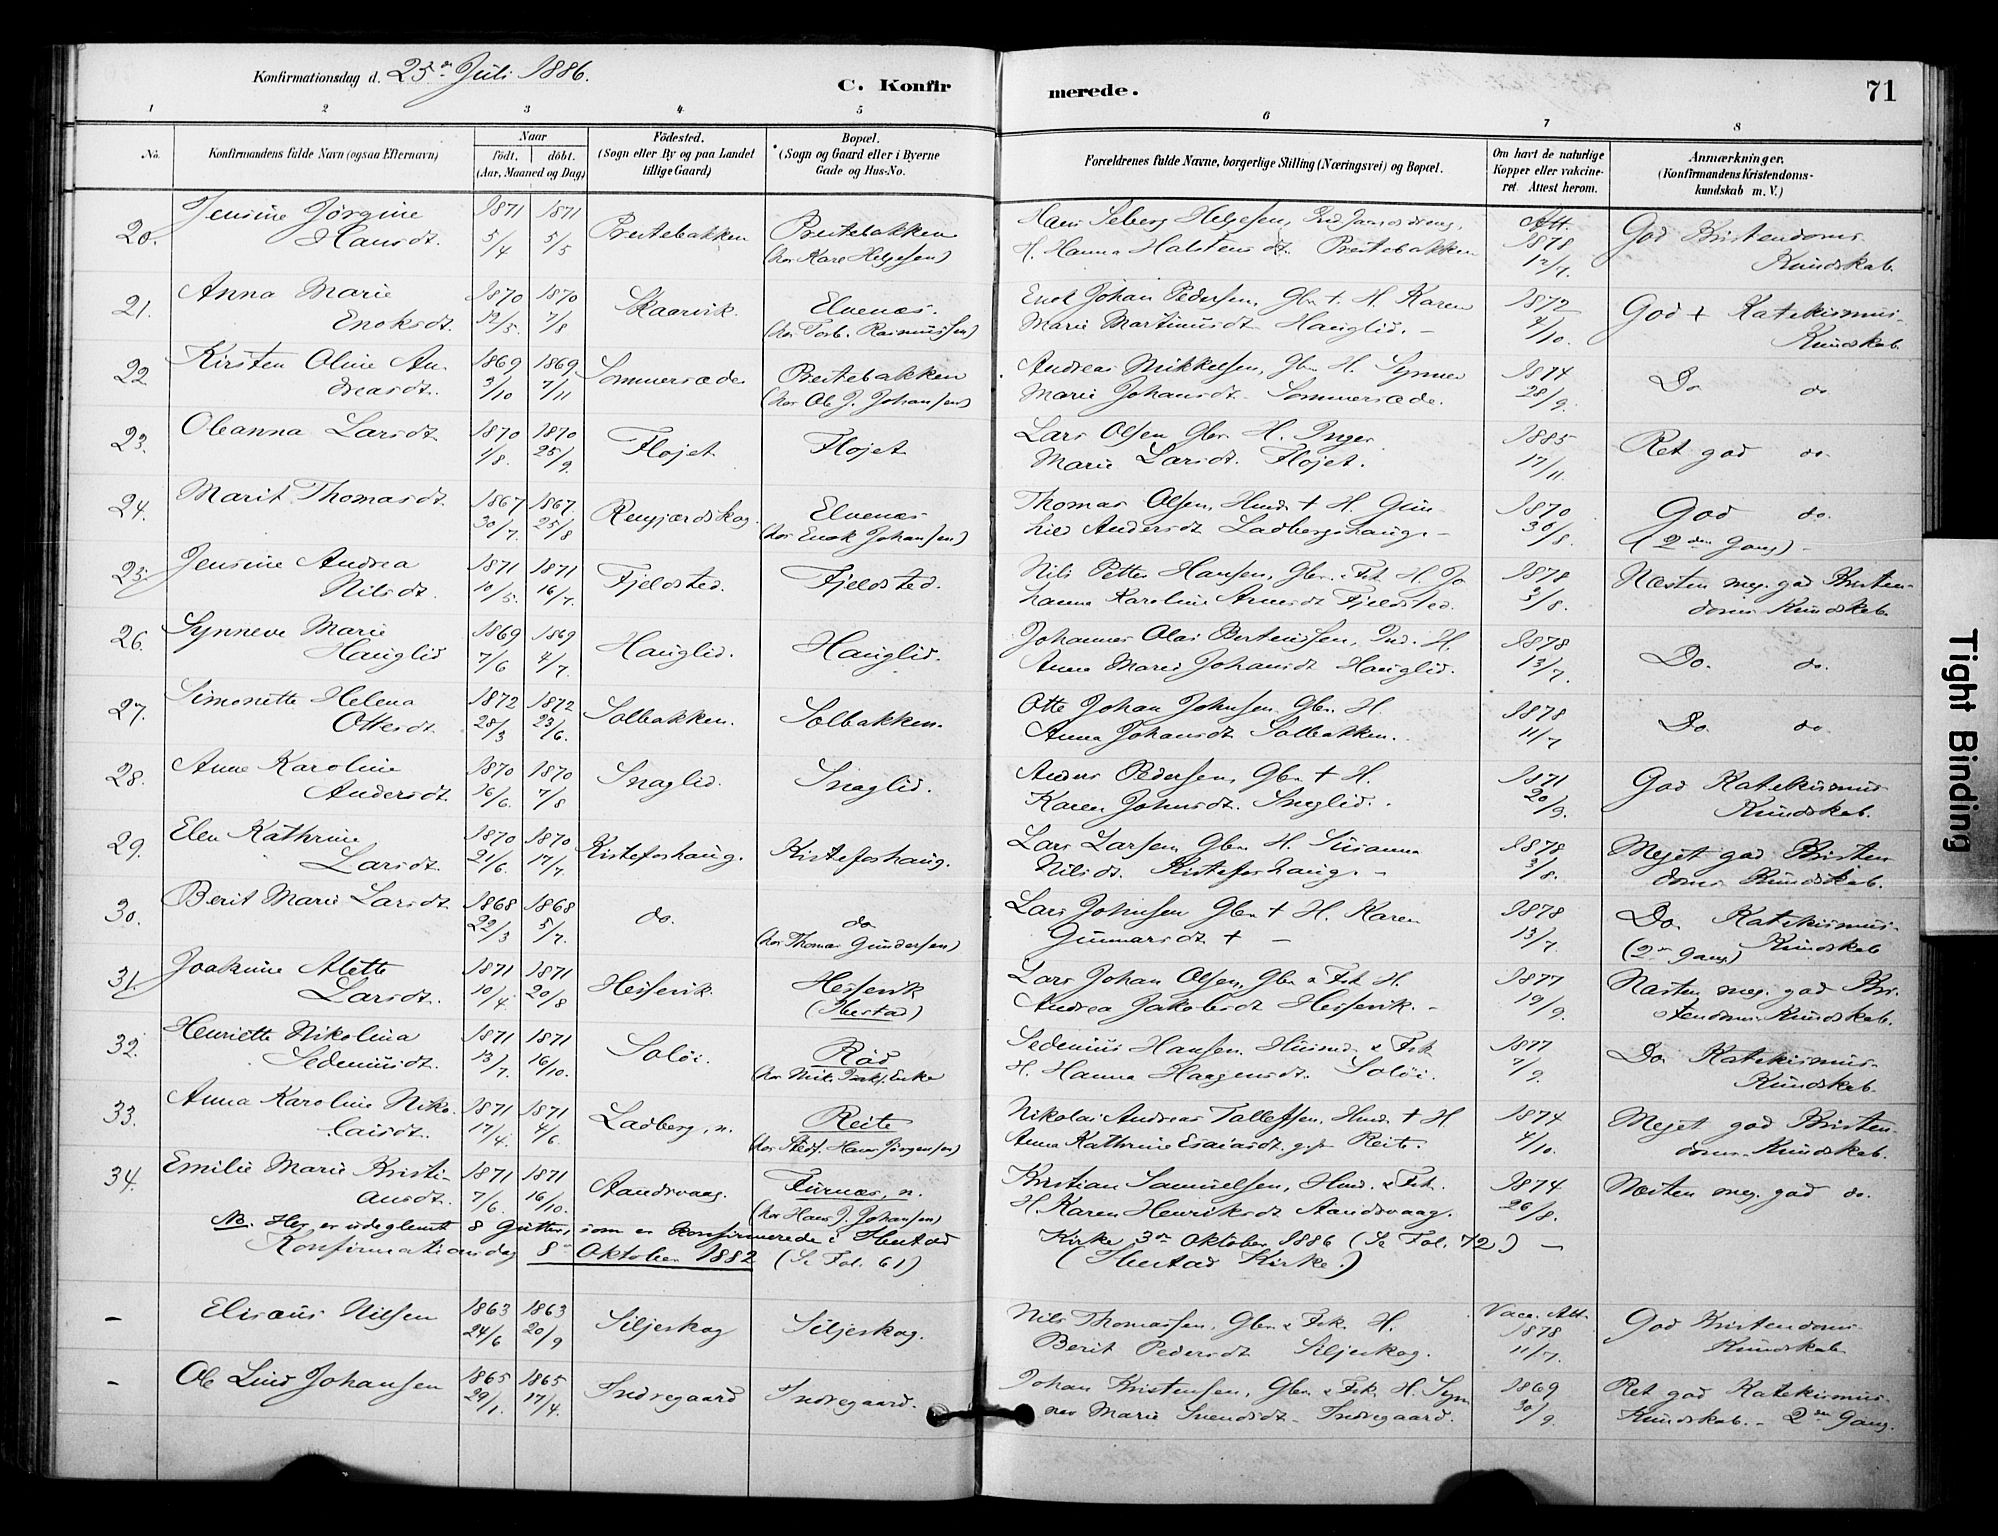 Konfirmationsdag d. 25de Juli 1886.
C. Konfirmerede.
71
1 2 3 4 5 6 7 8
No.
Konfirmandens fulde Navn (ogsaa Efternavn)
Naar
født. døbt.
(Aar, Maaned og Dag)
Födested.
(Sogn eller By og paa Landet
tillige Gaard)
Bopæl.
(Sogn og Gaard eller i Byerne
Gade og Hus-No.
Forældrenes fulde Navne, borgerlige Stilling (Næringsvei) og Bopæl.
Om havt de naturlige
Kopper eller vakcine-
ret. Attest herom.
Anmærkninger.
(Konfirmandens Kristendoms-
kundskab m. V.)
20. Jensine Jørgine
Hansdt. 1871 5/4 1871 5/5 Breitebakken Breitebakken
(hos Kare Helgesen)
Hans Seberg Helgesen,
H. Hanna Halstensdt. Breitebakken
Att. 1878 12/7. God Kristendoms-
Kundskab.
21. Anna Marie
Enoksdt. 1870 12/5. 1870 7/8 Skaarvik. Elvenæs.
(hos Torb. Rasmussen)
Enok Johan Pedersen, Gbr. + H. Karen
Marie Martinusdt. Hauglid. –
1872 4/10. God + Katekismus-
Kundskab.
22 Kirsten Oline An-
dreasdt. 1869 3/10 1869 7/11 Sommersæde Breitebakken
(hos Ole J. Johansen)
Andreas Mikkelsen, Gbr. H. Synnev
Marie Johansdt. Sommersæde.
1874 28/9. Do do
23. Oleanna Larsdt. 1870 1/8. 1870 25/9. Fløjet Fløjet
Lars Olsen Gbr. H. Inger
Marie Larsdt. Fløjet.
1885 17/11. Ret god do.
24. Marit Thomasdt. 1867 30/7. 1867. 25/8 Renjærdskog. Elvenæs
(hos Enok Johansen)
Thomas Olsen, Husm. + H. Gun-
hild Andersdt. Ladbergshaug. –
1870 30/8. God do.
(2den Gang) –
25. Jensine Andrea
Nilsdt. 1871 10/5. 1871 16/7. Fjeldsted. Fjeldsted.
Nils Petter Hansen, Gbr. & Fsk. H. Jo-
hanna Karoline Arnesdt. Fjeldsted.
1878 3/8. Næsten meg. god Kristen-
doms Kundskab.
26. Synneve Marie
Hauglid 1869 7/6 1869 4/7. Hauglid. Hauglid.
Johannes Olai Berteussen, Ind. H.
Anne Marie Johansdt. Hauglid.
1878 13/7. Do. do.
27. Simonette Helena
Ottesdt. 1872 28/3 1872 23/6. Solbakken. Solbakken.
Otte Johan Johnsen Gbr. H.
Anna Johansdt. Solbakken.
1878 11/7 Do. do.
28. Anne Karoline
Andersdt. 1870 16/6. 1870 7/8 Snaglid. Snaglid.
Anders Pedersen, Gbr. + H.
Karen Johnsdt. Snaglid.
1871 20/9. God Katekismus
Kundskab.
29. Elen Kathrine
Larsdt. 1870 21/6. 1870 17/7 Kisteforshaug. Kisteforshaug.
Lars Larsen, Gbr. H. Susanna
Nilsdt. Kisteforshaug. –
1878 3/8. Meget god Kristen-
doms Kundskab.
30. Berit Marie Larsdt. 1868 22/3 1868 5/7. do. do
(hos Thomas Gundersen)
Lars Johnsen Gbr. + H. Karen
Gunnarsdt + –
1878 13/7 Do. Katekismus-
(2den Gang) Kundskab
31. Joakime Alette
Larsdt. 1871 10/4. 1871 20/8 Hessevik. Hessevik
(Ibestad)
Lars Johan Olsen, Gbr. & Fsk. H.
Andrea Jakobsdt Hessevik. –
1877 19/9. Næsten meg. god Kri-
stendoms Kundskab.
32. Henriette Nikolina
Sedeniusdt. 1871 13/7. 1871 16/10. Soløi. Rød
Sedenius Hansen. Husm. & Fsk.
H. Hanna Haagensdt. Soløi.
1877 7/9. Do. Katekismus-
Kundskab.
33. Anna Karoline Niko-
laisdt. 1871 17/4. 1871 4/6. Ladberg, n. Reite
(hos Stedf. Hans Jørgensen)
Nikolai Andreas Tollefsen, Husm. + H
Anna Kathrine Esaiasdt. gift Reite.
1874 4/10. Meget god Kristen-
doms-Kundskab.
34. Emilie Marie Kristi-
ansdt. 1871 7/6. 1871 16/10. Aandsvaag. Furnæs, n.
(hos Hans J. Johansen)
Kristian Samuelsen, Husm. & Fsk.
H. Karen Henriksdt Aandsvaag.
1874 26/8. Næsten meg. god do.
NB. Her er udeglemt 8 Gutter, som er konfirmerede i Ibestad
Kirke 3die Oktober 1886 (Se Fol. 72) –
Konfirmationsdag 8de Oktober 1882 (Se Fol. 61)
(Ibestad Kirke.)
– Elisæus Nilsen 1863 24/6 1863 20/9 Siljeskog Siljeskog.
Nils Thomassen, Gbr. & Fsk. H.
Berit Pedersdt. Siljeskog.
Vacc. Att. 1878 11/7. God Kristendoms
Kundskab
– Ole Lind Johansen 1865 29/1. 1865 17/4. Indregaard Indregaard.
Johan Kristensen, Gbr. & Fsk. H. Syn-
nev Marie Svendsdt. Indregaard.
1869 30/9. Ret god Katekismus-
Kundskab. – 2den Gang.
Tight Binding